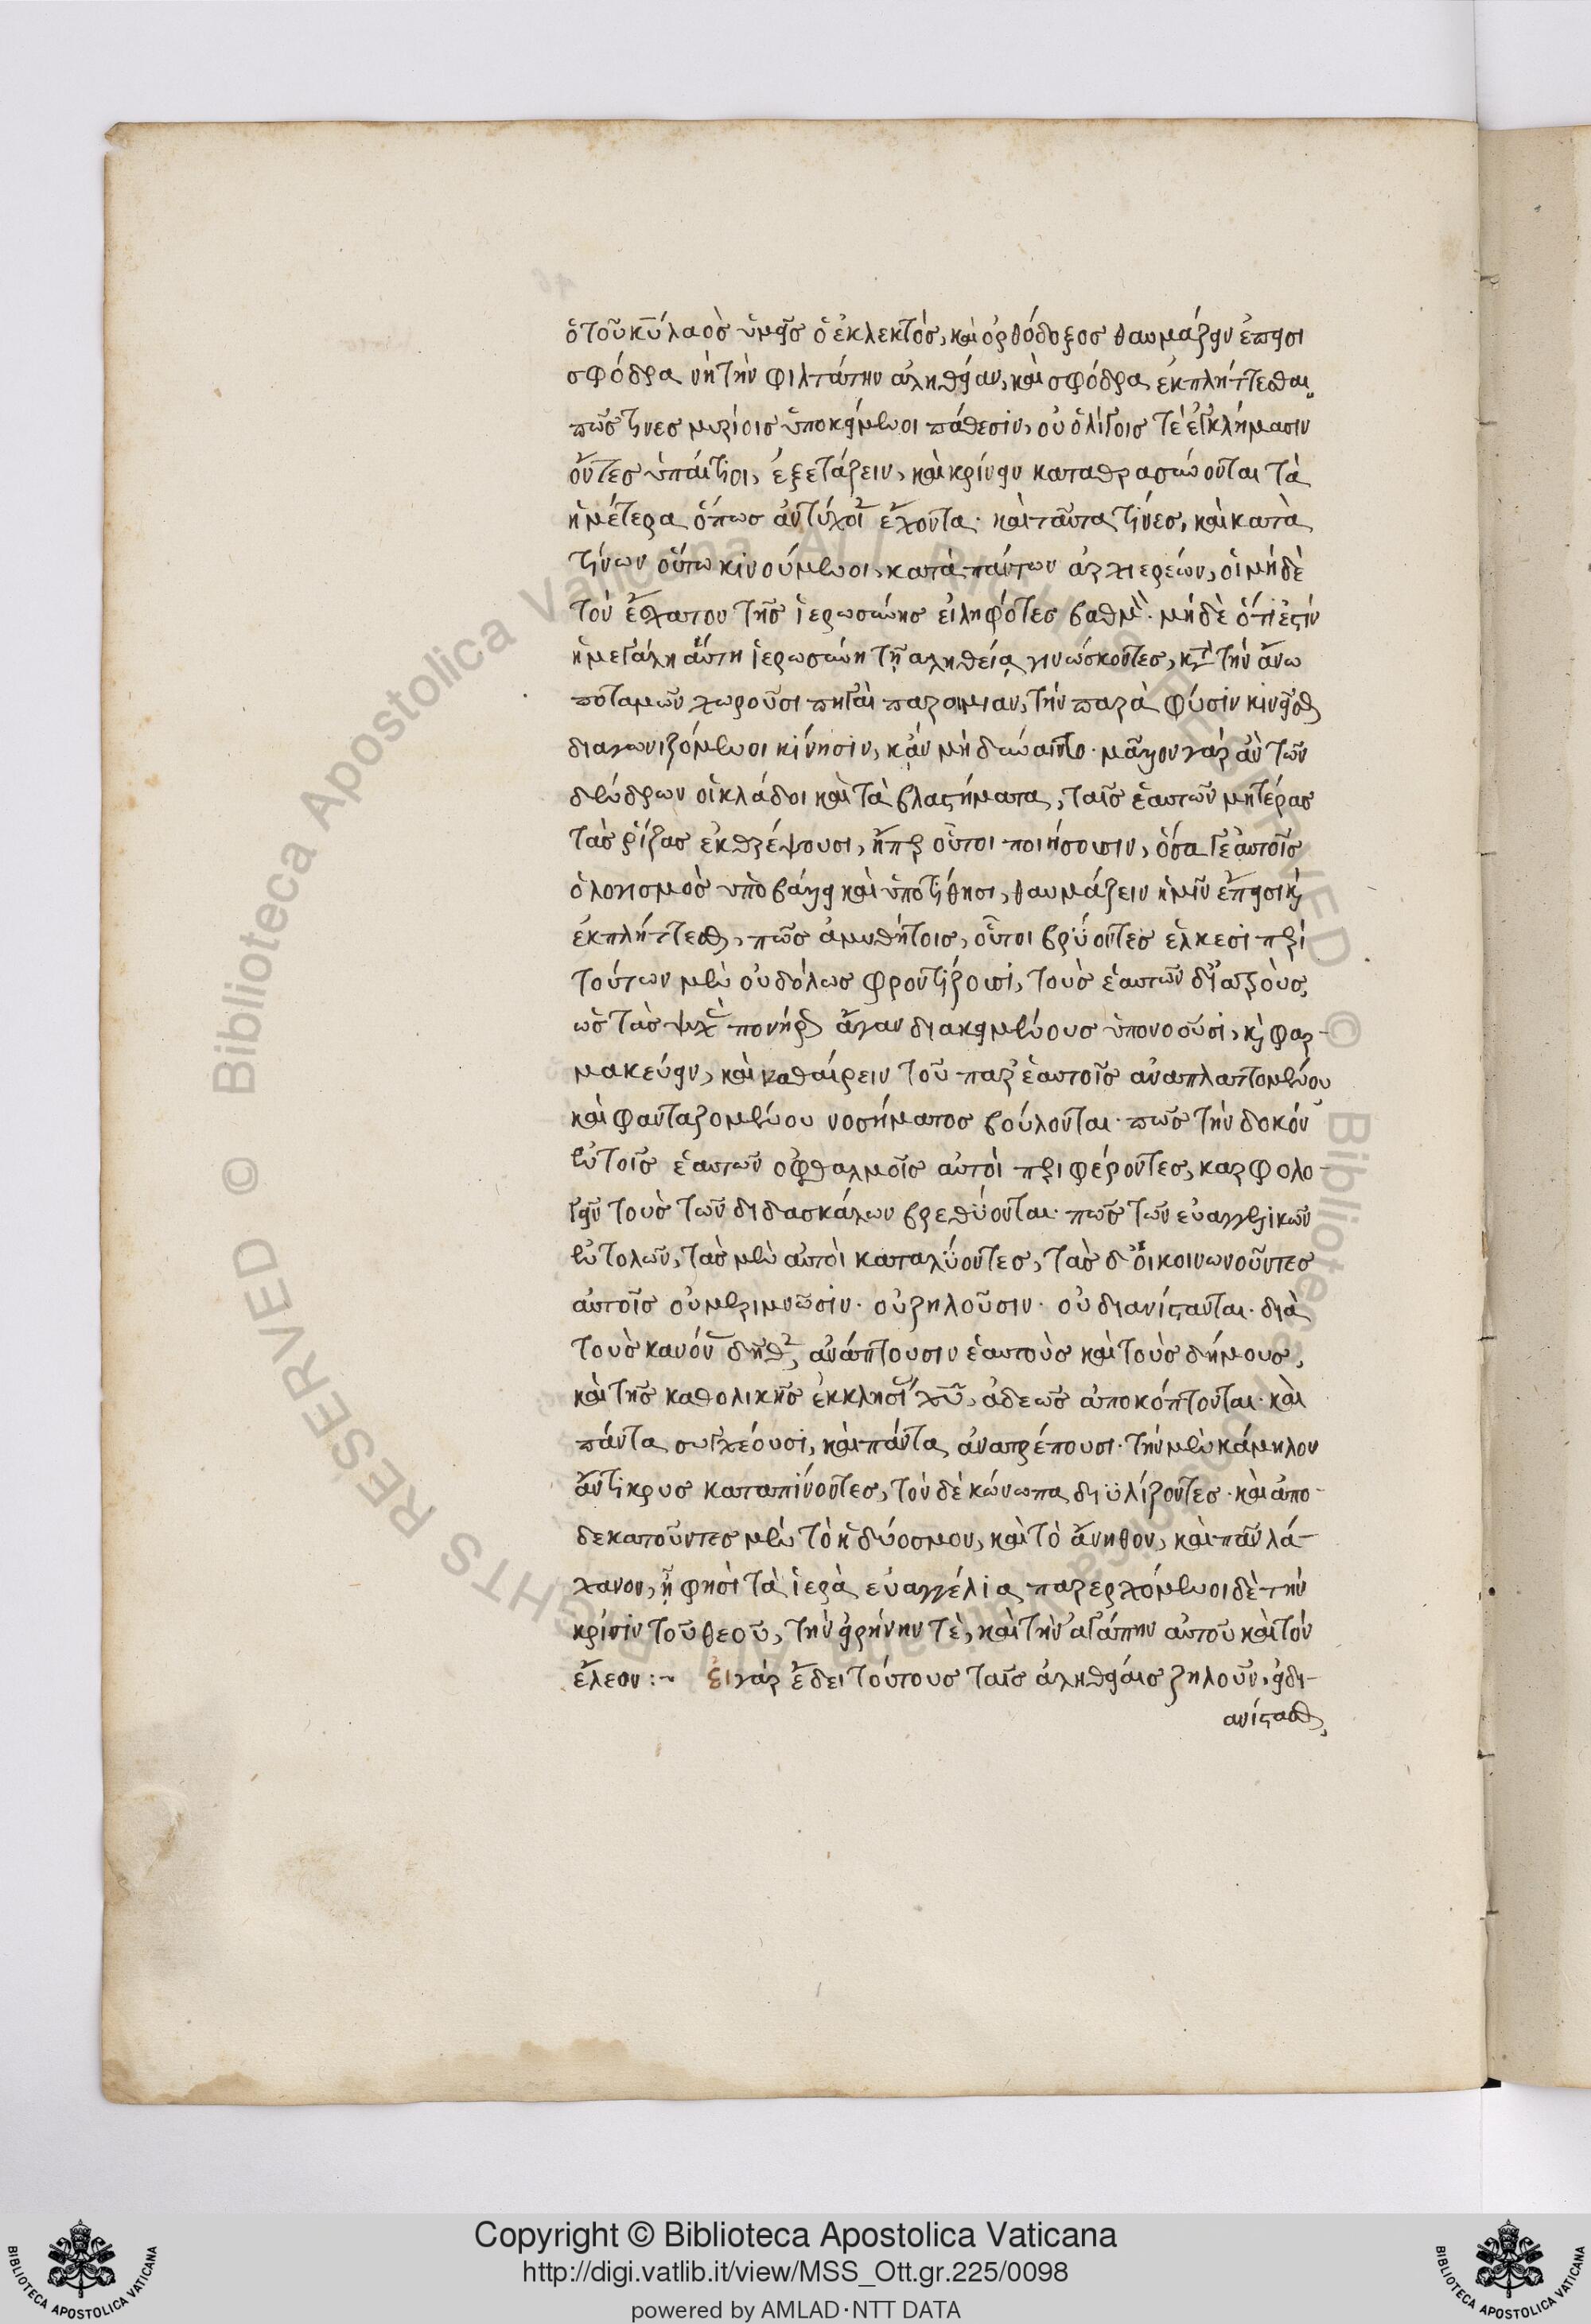 ὁ τοῦ κυ̅ λαὸς ὑμεῖς ὁ ἐκλεκτὸς, καὶ ὀρθόδοξος θαυμάζειν ἔπεισι
σφόδρα νὴ τὴν φιλτάτην ἀλήθειαν, καὶ σφόδρα ἐκπλήττεσθαι
πῶς τινες μυρίοις ὑποκείμενοι πάθεσιν, οὐ ὀλίγοις τὲ ἐγκλήμασιν
ὄντες ὑπαίτιοι, ἐξετάζειν, καὶ κρίνειν καταθρασύνονται τὰ
ἡμέτερα ὅπως ἂν τύχοι ἔχοντα· καὶ ταῦτα τίνες, καὶ κατὰ
τίνων οὕτω κινούμενοι, κατὰ πάντων ἀρχιερέων, οἱ μήδὲ
τὸν ἔσχατον τῆς ἱερωσύνης εἰληφότες βαθμὸν· μήδὲ ὅ,τι ἐστὶν
ἡ μεγάλη αὕτη ἱερωσύνη τῇ ἀληθείᾳ γινώσκοντες, κατὰ τὴν ἄνω
ποταμῶν χωροῦσι πηγαὶ παροιμίαν, τὴν παρὰ φύσιν κινεῖσθαι
διαγωνιζόμενοι κίνησιν, κἂν μὴ δύναιντο· μᾶλλον γὰρ ἂν τῶν
δένδρων οἱ κλάδοι καὶ τὰ βλαστήματα, ταῖς ἑαυτῶν μητέρας
τὰς ῥίζας ἐκθρέψουσι, ἤπερ οὗτοι ποιήσουσιν, ὅσα γε αὐτοῖς
ὁ λογισμὸς ὑποβάλλει καὶ ὑποτίθησι, θαυμάζειν ἡμῖν ἔπεισι καὶ
ἐκπλήττεσθαι, πῶς ἀμυθήτοις, οὗτοι βρύοντες ἕλκεσι περὶ
τούτων μὲν οὐδόλως φροντίζουσι, τοὺς ἑαυτῶν δὲ ἰατροὺς,
ὡς τὰς ψυχὰς πονήρως ἄγαν διακειμένους ὑπονοοῦσι, καὶ φαρ-
μακεύειν, καὶ καθαίρειν τοῦ παρ' ἑαυτοῖς ἀναπλαττομένου
καὶ φανταζομένου νοσήματος βούλονται· πῶς τὴν δοκὸν
ἐν τοῖς ἑαυτῶν ὀφθαλμοῖς αὐτοὶ περιφέροντες, καρφολο-
γεῖν τοὺς τῶν διδασκάλων βρεθύονται· πῶς τῶν εὐαγγελικῶν
ἐντολῶν, τὰς μὲν αὐτοὶ καταλύοντες, τὰς δ' οἱ κοινωνοῦντες
αὐτοῖς οὐ μεριμνῶσιν· οὐ ζηλοῦσιν· οὐ διανίστανται· διὰ
τοὺς κανόνας δῆθεν, ἀνάπτουσιν ἑαυτοὺς καὶ τοὺς δήμους,
καὶ τῆς καθολικῆς ἐκκλησίας χυ̅, ἀδεῶς ἀποκόπτονται· καὶ
πάντα συγχέουσι, καὶ πάντα ἀνατρέπουσι· τὴν μὲν κάμηλον
ἄντικρυς καταπίνοντες, τὸν δὲ κώνωπα διϋλίζοντες· καὶ ἀπο-
δεκατοῦντες μὲν τὸ ἡδύοσμον, καὶ τὸ ἄνηθον, καὶ πᾶν λά-
χανον, ᾗ φησὶ τὰ ἱερὰ εὐαγγέλια παρερχόμενοι δὲ τὴν
κρίσιν τοῦ θεοῦ, τὴν εἰρήνην τὲ, καὶ τὴν ἀγάπην αὐτοῦ καὶ τὸν
ἔλεον :~ εἰ γὰρ ἔδει τούτους ταῖς ἀληθείαις ζηλοῦν, εἰ δι-
ανίστασθαι,
Copyright © Biblioteca Apostolica Vaticana
http://digi.vatlib.it/view/MSS_Ott.gr.225/0098
powered by AMLAD·NTT DATA